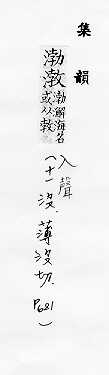 集韻
渤㪍
渤澥海名
或从㪍
（入聲
十一沒．薄沒切．P681）